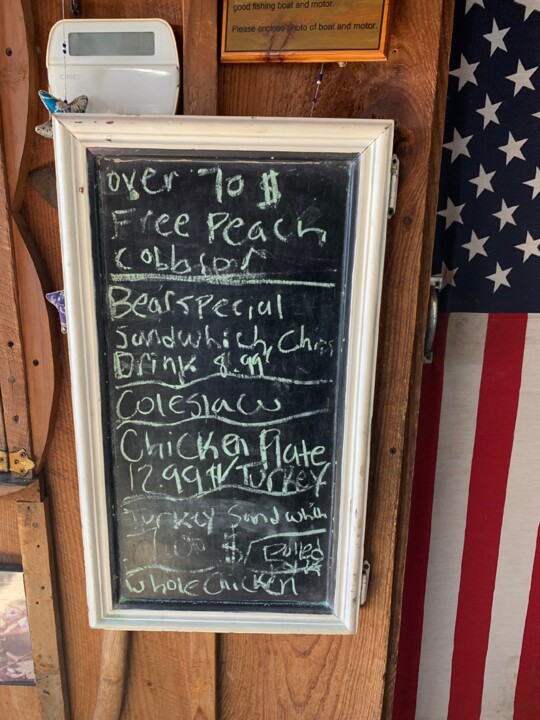 good fishing boat and motor.
Please enclose photo of boat and motor.
over 70 $
Free Peach
Cobbler
Bear special
Sandwhich, Chips
Drink 8.99
Coleslaw
Chicken Plate
12.99 $/Turkey
Turkey Sandwhich
7.00 $/Pulled
Pork
Whole Chicken